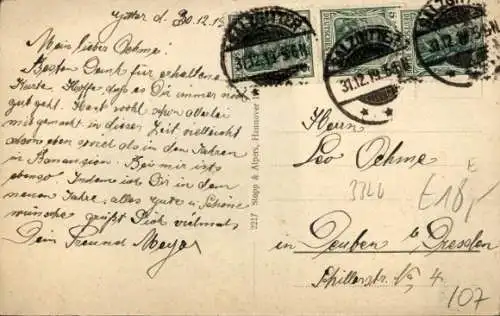 Gitter d. 30.12.19
Mein lieber Oehme!
Besten Dank für erhaltene
Karte. Hoffe daß es Dir immer noch
gut geht. Hast wohl schon allerlei
mitgemacht in dieser Zeit vielleicht
eben soviel als in den Jahren
in Bei mir ist es
ebenso. Indem ich Dir in dem
neuen Jahre, alles gute u. Schöne
wünsche grüßt Dich vielmals
Dein Freund Meyer
2217 Stapp & Alpers, Hannover
SALZGITTER
31.12.19. 5-6N.
SALZGITTER
31.12.19. 5-6N.
SALZGITTER
31.12.19. 5-6N.
Herrn
Leo Oehme
3326
E 18,-
in Deuben b/ Dresden
Schillerstr. No 4.
107